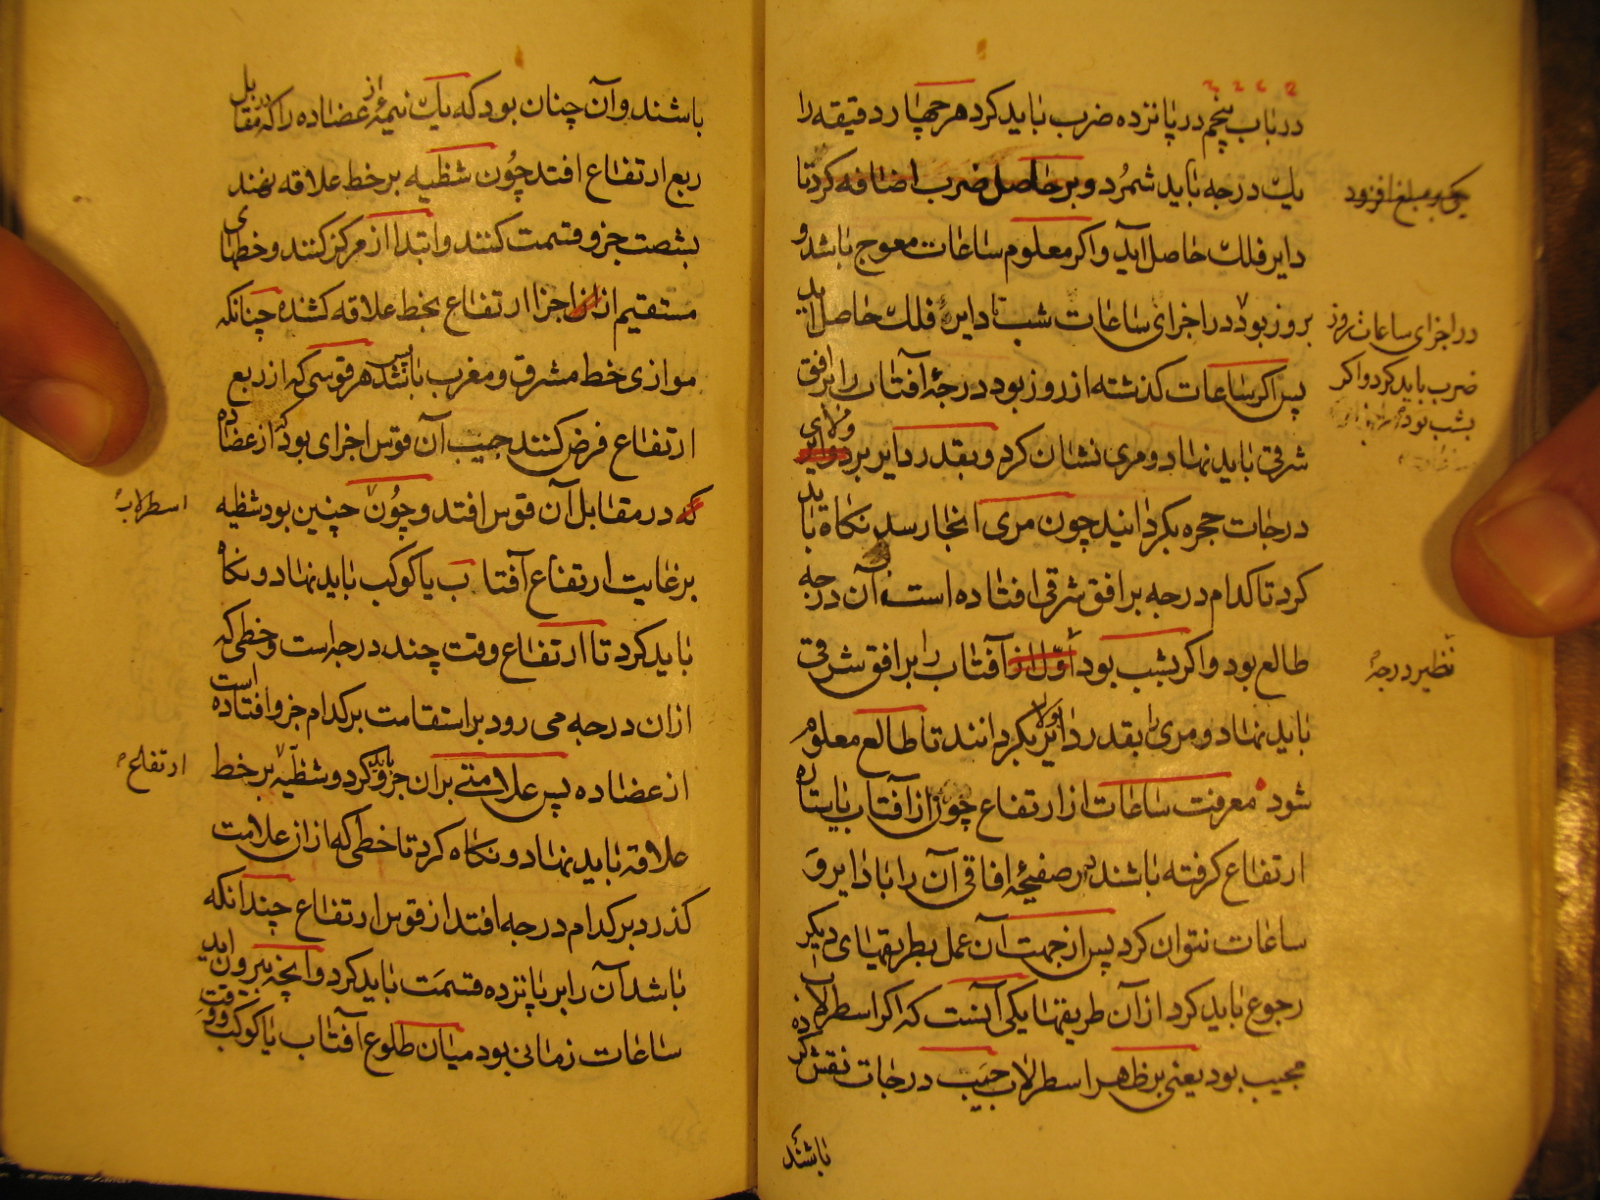 در باب پنجم در پانزده ضرب باید کرد هر چهار دقیقه را
یک درجه باید شمرد و بر حاصل ضرب اضافه کرد تا
دایر فلک حاصل اید و اکر معلوم ساعات معوج باشد و
بروز بود در اجزای ساعات شب تا دایرهٔ فلک حاصل اید
پس اکر ساعات کذشته از روز بود درجهٔ آفتاب را بر افق
شرقی باید نهاد و مری نشان کرد و بقدر دایر بر ولای
درجات حجره بکردانید چون مری انجا رسد نکاه باید
کرد تا کدام درجه بر افق شرقی افتاده است آن درجه
طالع بود و اکر بشب بود اول از آفتاب را بر افق شرقی
باید نهاد و مری را بقدر دایر اولا بکردانند تا طالع معلوم
شود معرفت ساعات از ارتفاع چون از آفتاب یا ستاره
ارتفاع کرفته باشند بر صفیحهٔ افاقی آن را با دایر و
ساعات نتوان کرد پس از جهت آن عمل بطریقهای دیکر
رجوع باید کرد از آن طریقها یکی آنست که اکر اسطرلاب
مجیب بود یعنی بر ظهر اسطرلاب جیب درجات نقش کرده
باشند
در اجزای ساعات روز
ضرب باید کرد و اکر
بشب بود
نظیر درجهٔ
باشند و آن چنان بود که یک نیمهٔ از عضاده را که در مقابل
ربع ارتفاع افتد چون شظیه بر خط علاقه نهند
بشصت جزو قسمت کنند و ابتدا از مرکز کنند و خطهای
مستقیم از اجزا ارتفاع بخط علاقه کشنده چنانکه
موازی خط مشرق و مغرب باشد پس هر قوسی که از ربع
ارتفاع فرض کنند جیب آن قوس اجزای بود که از عضاده
در مقابل آن قوس افتد و چون چنین بود شظیه
بر غایت ارتفاع آفتاب یا کوکب باید نهاد و نکاه
باید کرد تا ارتفاع وقت چند درجه است و خطی که
از ان درجه می رود بر استقامت بر کدام جزو افتاده است
از عضاده پس علامتی بران جزو باید کرد و شظیه بر خط
علاقه باید نهاد و نکاه کرد تا خطی که از ان علامت
کذرد بر کدام درجه افتد از قوس ارتفاع چندانکه
باشد آن را بر پانزده قسمت باید کرد و انچه بیرون اید
ساعات زمانی بود میان طلوع آفتاب یا کوکب و وقت
اسطرلابٔ
ارتفاع